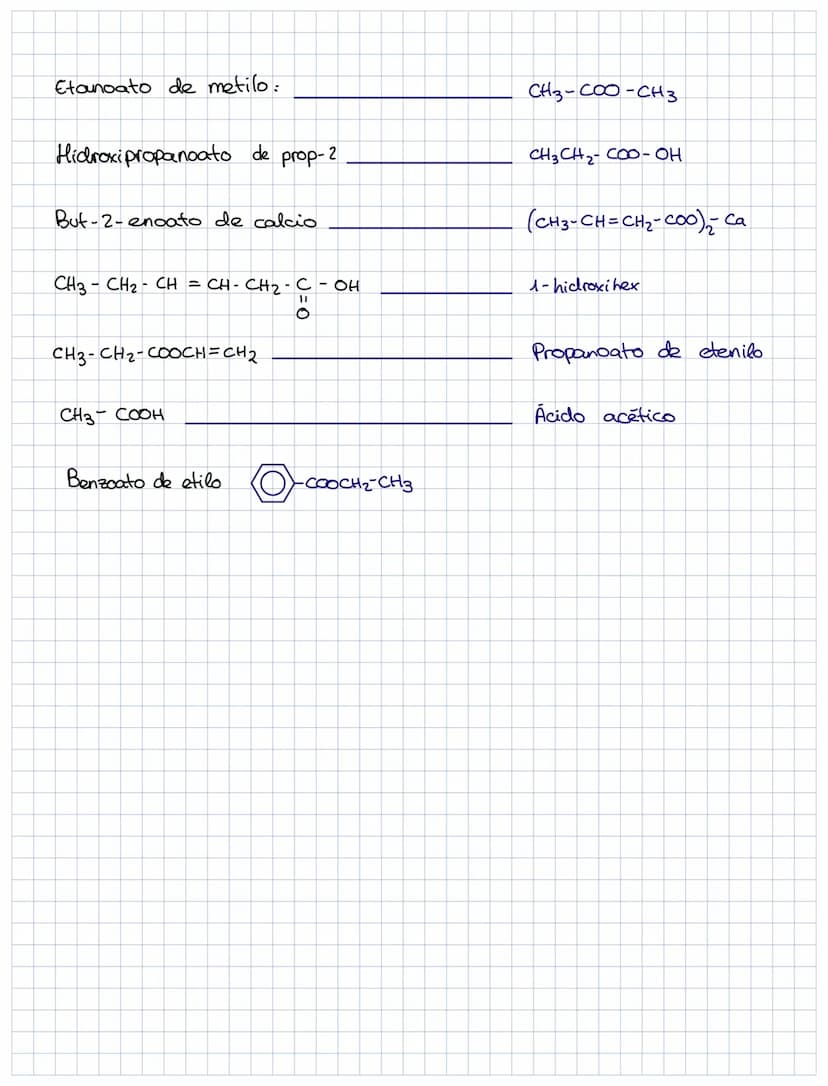 Etanoato de metilo: CH3-COO-CH3
Hidroxipropanoato de prop-2 CH3CH2-COO-OH
But-2-enoato de calcio (CH3-CH=CH2-COO)2-Ca
CH3-CH2-CH=CH-CH2-C-OH 1-hidroxihex
=
O
CH3-CH2-COOCH=CH2 Propanoato de etenilo
CH3-COOH Ácido acético
Benzoato de etilo -COOCH2-CH3